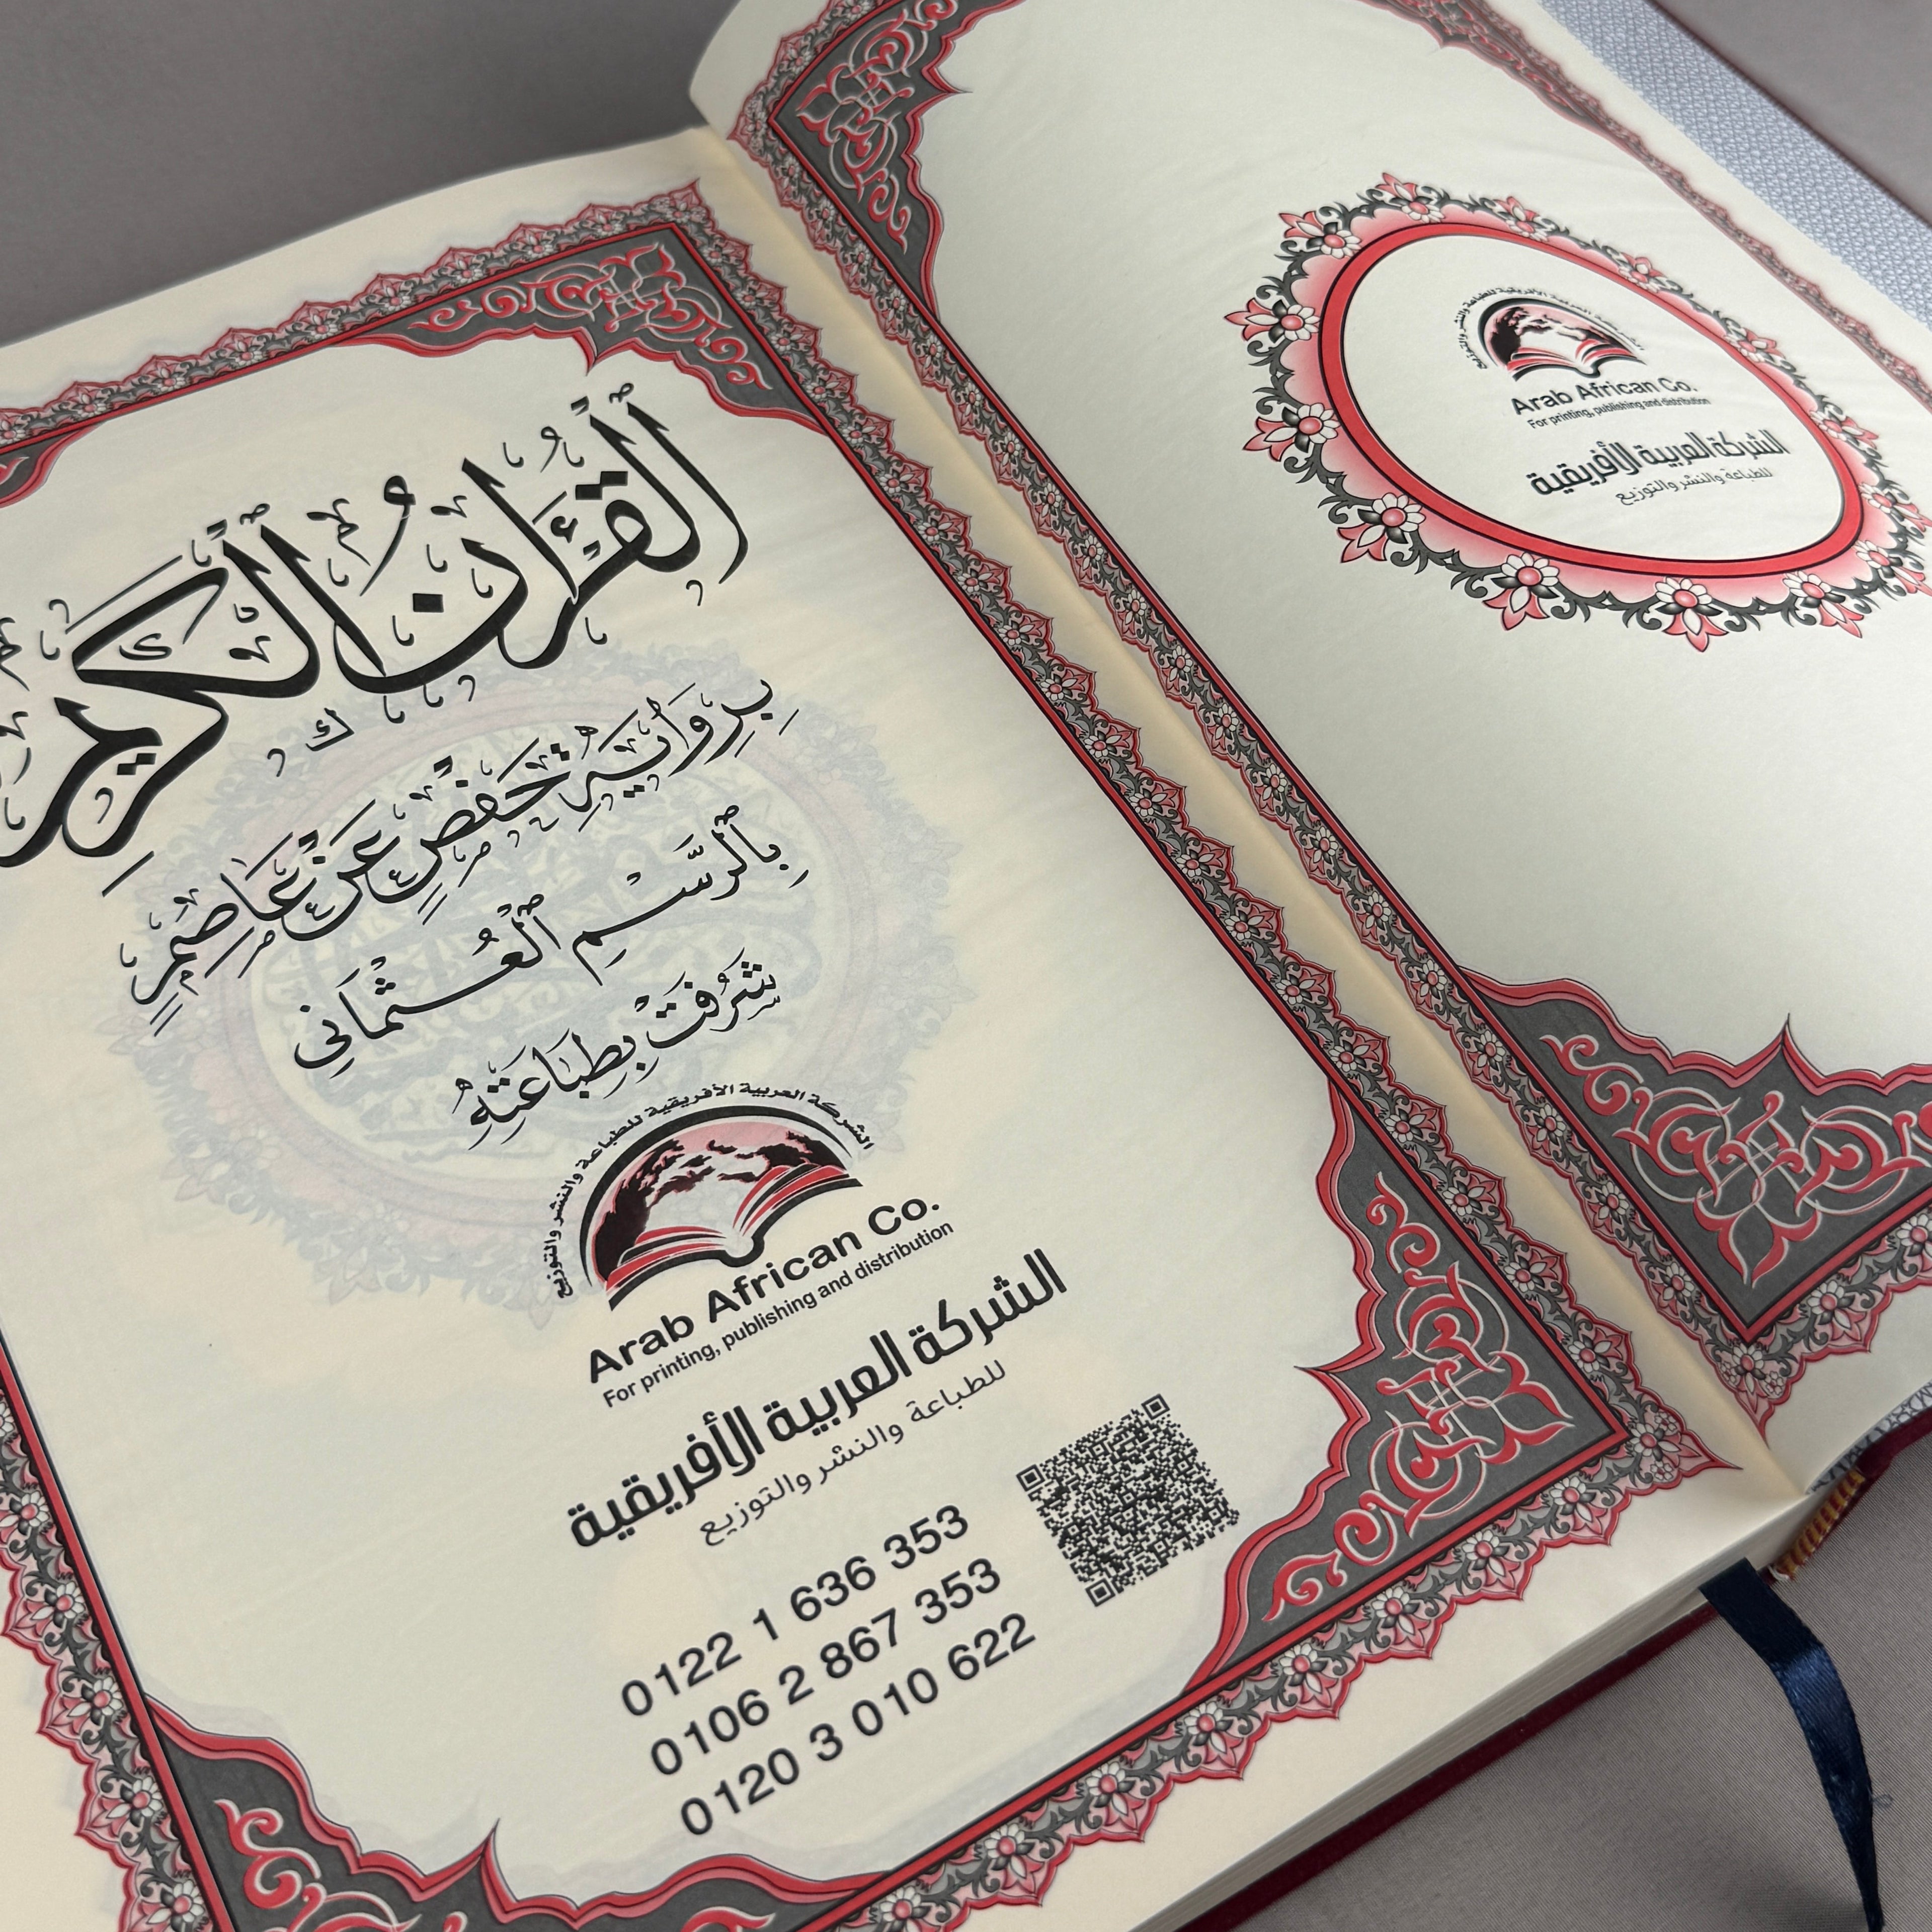 القرآن الكريم
بِرِوَايَةِ حَفْصٍ عَنْ عَاصِمٍ
بِٱلرَّسْمِ ٱلْعُثْمَانِي
شَرُفَتْ بِطِبَاعَتِهِ
الشركة العربية الأفريقية للطباعة والنشر والتوزيع
Arab African Co.
For printing, publishing and distribution
الشركة العربية الأفريقية
للطباعة والنشر والتوزيع
0122 1 636 353
0106 2 867 353
0120 3 010 622
الشركة العربية الأفريقية للطباعة والنشر والتوزيع
Arab African Co.
For printing, publishing and distribution
الشركة العربية الأفريقية
للطباعة والنشر والتوزيع